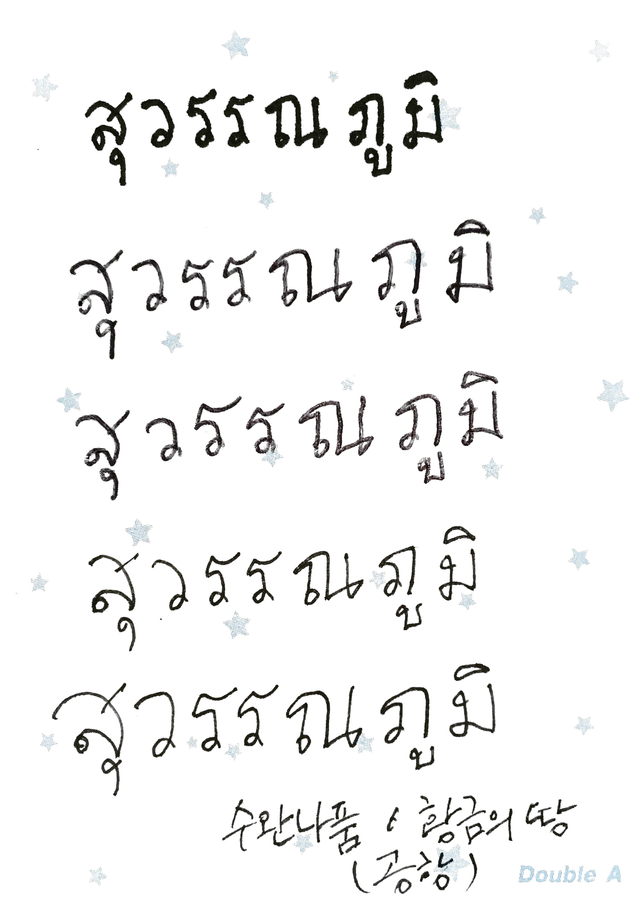 สุวรรณภูมิ
สุวรรณภูมิ
สุวรรณภูมิ
สุวรรณภูมิ
สุวรรณภูมิ
수완나품 : 황금의 땅
(공항)
Double A